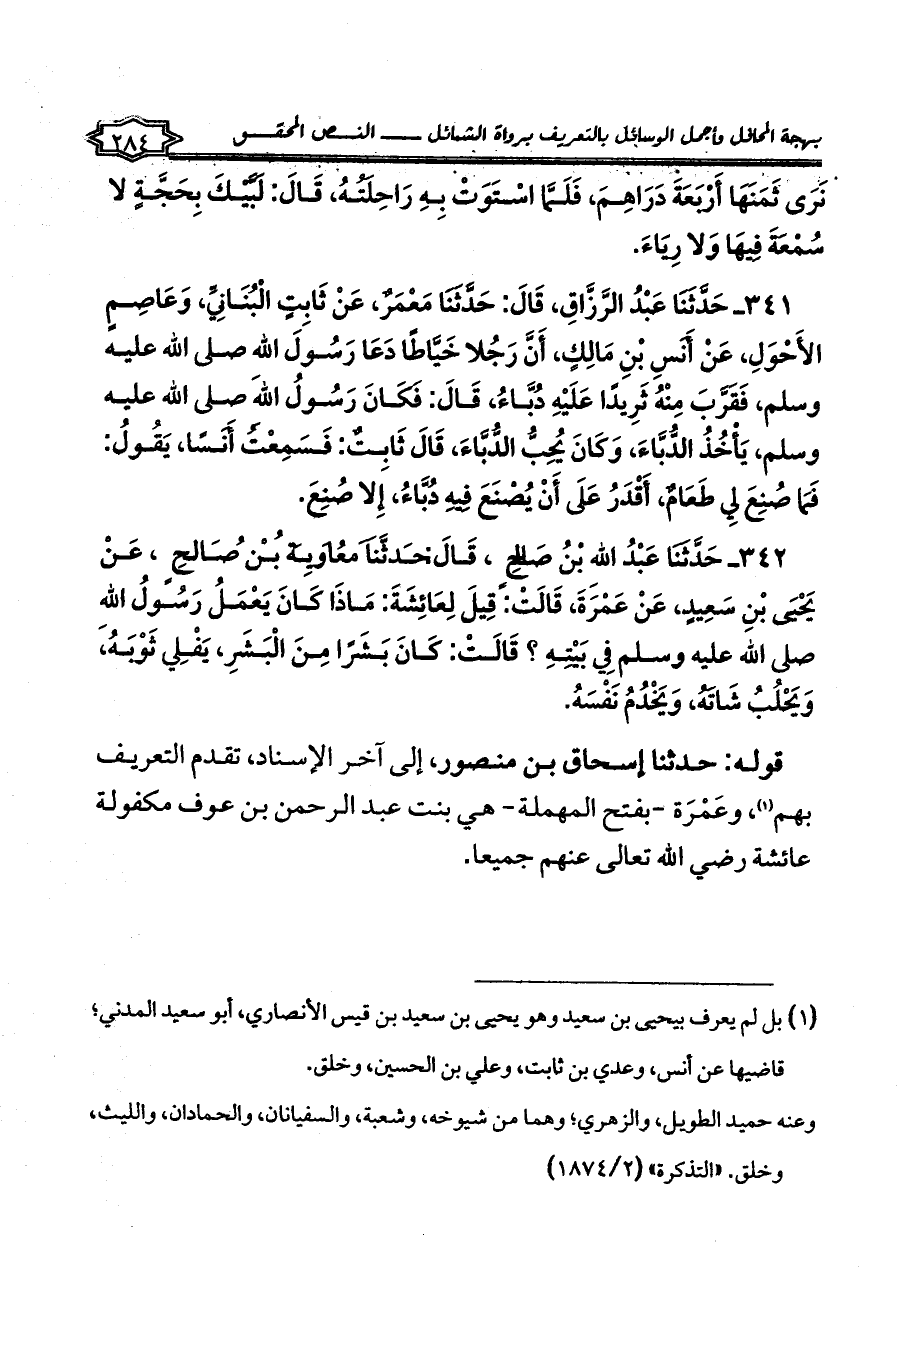 بهجة المحافل وأجمل الوسائل بالتعريف برواة الشمائل ـــــ النص المحقق
٢٨٤
نَرَى ثَمَنَهَا أَرْبَعَةَ دَرَاهِمَ، فَلَمَّا اسْتَوَتْ بِهِ رَاحِلَتُهُ، قَالَ: لَبَّيْكَ بِحَجَّةٍ لا
سُمْعَةَ فِيهَا وَلا رِيَاءَ.
٣٤١ـ حَدَّثَنَا عَبْدُ الرَّزَّاقِ، قَالَ: حَدَّثَنَا مَعْمَرٌ، عَنْ ثَابِتٍ الْبُنَانِيِّ، وَعَاصِمٍ
الأَحْوَلِ، عَنْ أَنَسِ بْنِ مَالِكٍ، أَنَّ رَجُلا خَيَّاطًا دَعَا رَسُولَ اللهِ صلى الله عليه
وسلم، فَقَرَّبَ مِنْهُ ثَرِيدًا عَلَيْهِ دُبَّاءُ، قَالَ: فَكَانَ رَسُولُ اللهِ صلى الله عليه
وسلم، يَأْخُذُ الدُّبَّاءَ، وَكَانَ يُحِبُّ الدُّبَّاءَ، قَالَ ثَابِتٌ: فَسَمِعْتُ أَنَسًا، يَقُولُ:
فَمَا صُنِعَ لِي طَعَامٌ، أَقْدَرُ عَلَى أَنْ يُصْنَعَ فِيهِ دُبَّاءُ، إِلا صُنِعَ.
٣٤٢ـ حَدَّثَنَا عَبْدُ اللهِ بْنُ صَالِحٍ ، قَالَ: حَدَّثَنَا مُعَاوِيَةُ بْنُ صَالِحٍ ، عَنْ
يَحْيَى بْنِ سَعِيدٍ، عَنْ عَمْرَةَ، قَالَتْ: قِيلَ لِعَائِشَةَ: مَاذَا كَانَ يَعْمَلُ رَسُولُ اللهِ
صلى الله عليه وسلم فِي بَيْتِهِ ؟ قَالَتْ: كَانَ بَشَرًا مِنَ الْبَشَرِ، يَفْلِي ثَوْبَهُ،
وَيَحْلُبُ شَاتَهُ، وَيَخْدُمُ نَفْسَهُ.
قوله: حدثنا إسحاق بن منصور، إلى آخر الإسناد، تقدم التعريف
بهم(١)، وعَمْرَة -بفتح المهملة- هي بنت عبد الرحمن بن عوف مكفولة
عائشة رضي الله تعالى عنهم جميعا.
(١) بل لم يعرف بيحيى بن سعيد وهو يحيى بن سعيد بن قيس الأنصاري، أبو سعيد المدني؛
قاضيها عن أنس، وعدي بن ثابت، وعلي بن الحسين، وخلق.
وعنه حميد الطويل، والزهري؛ وهما من شيوخه، وشعبة، والسفيانان، والحمادان، والليث،
وخلق. «التذكرة» (١٨٧٤/٢)